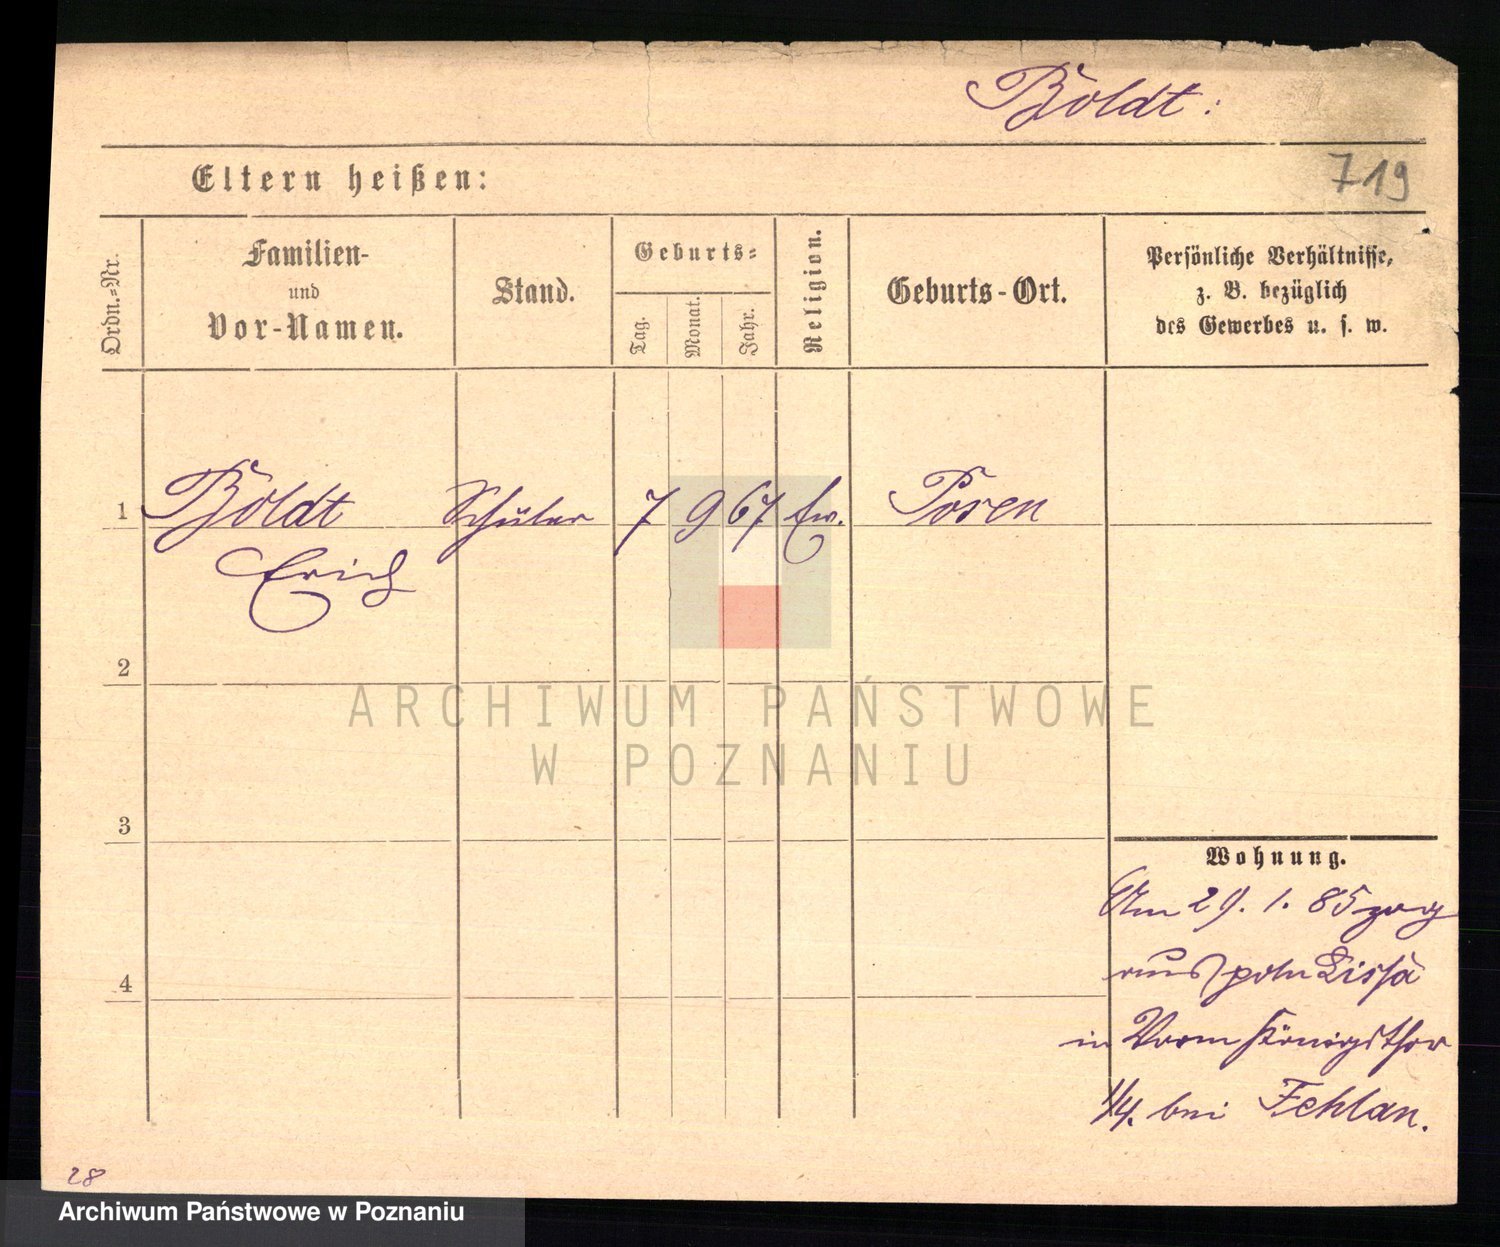 Boldt:
719
Eltern heißen:
Ordn.=Nr.
Familien-
und
Vor-Namen.
Stand.
Geburts=
Tag.
Monat.
Jahr.
Religion.
Geburts-Ort.
Persönliche Verhältnisse,
z. B. bezüglich
des Gewerbes u. s. w.
1 Boldt Schüler 7 9 67 Ev. Posen
Erich
2
ARCHIWUM PAŃSTWOWE
W POZNANIU
3
Wohnung.
Am 29. 1. 85 zog
aus poln Lissa
4
in Vorm Königsthor
1/4. bei Fehlan.
28
Archiwum Państwowe w Poznaniu